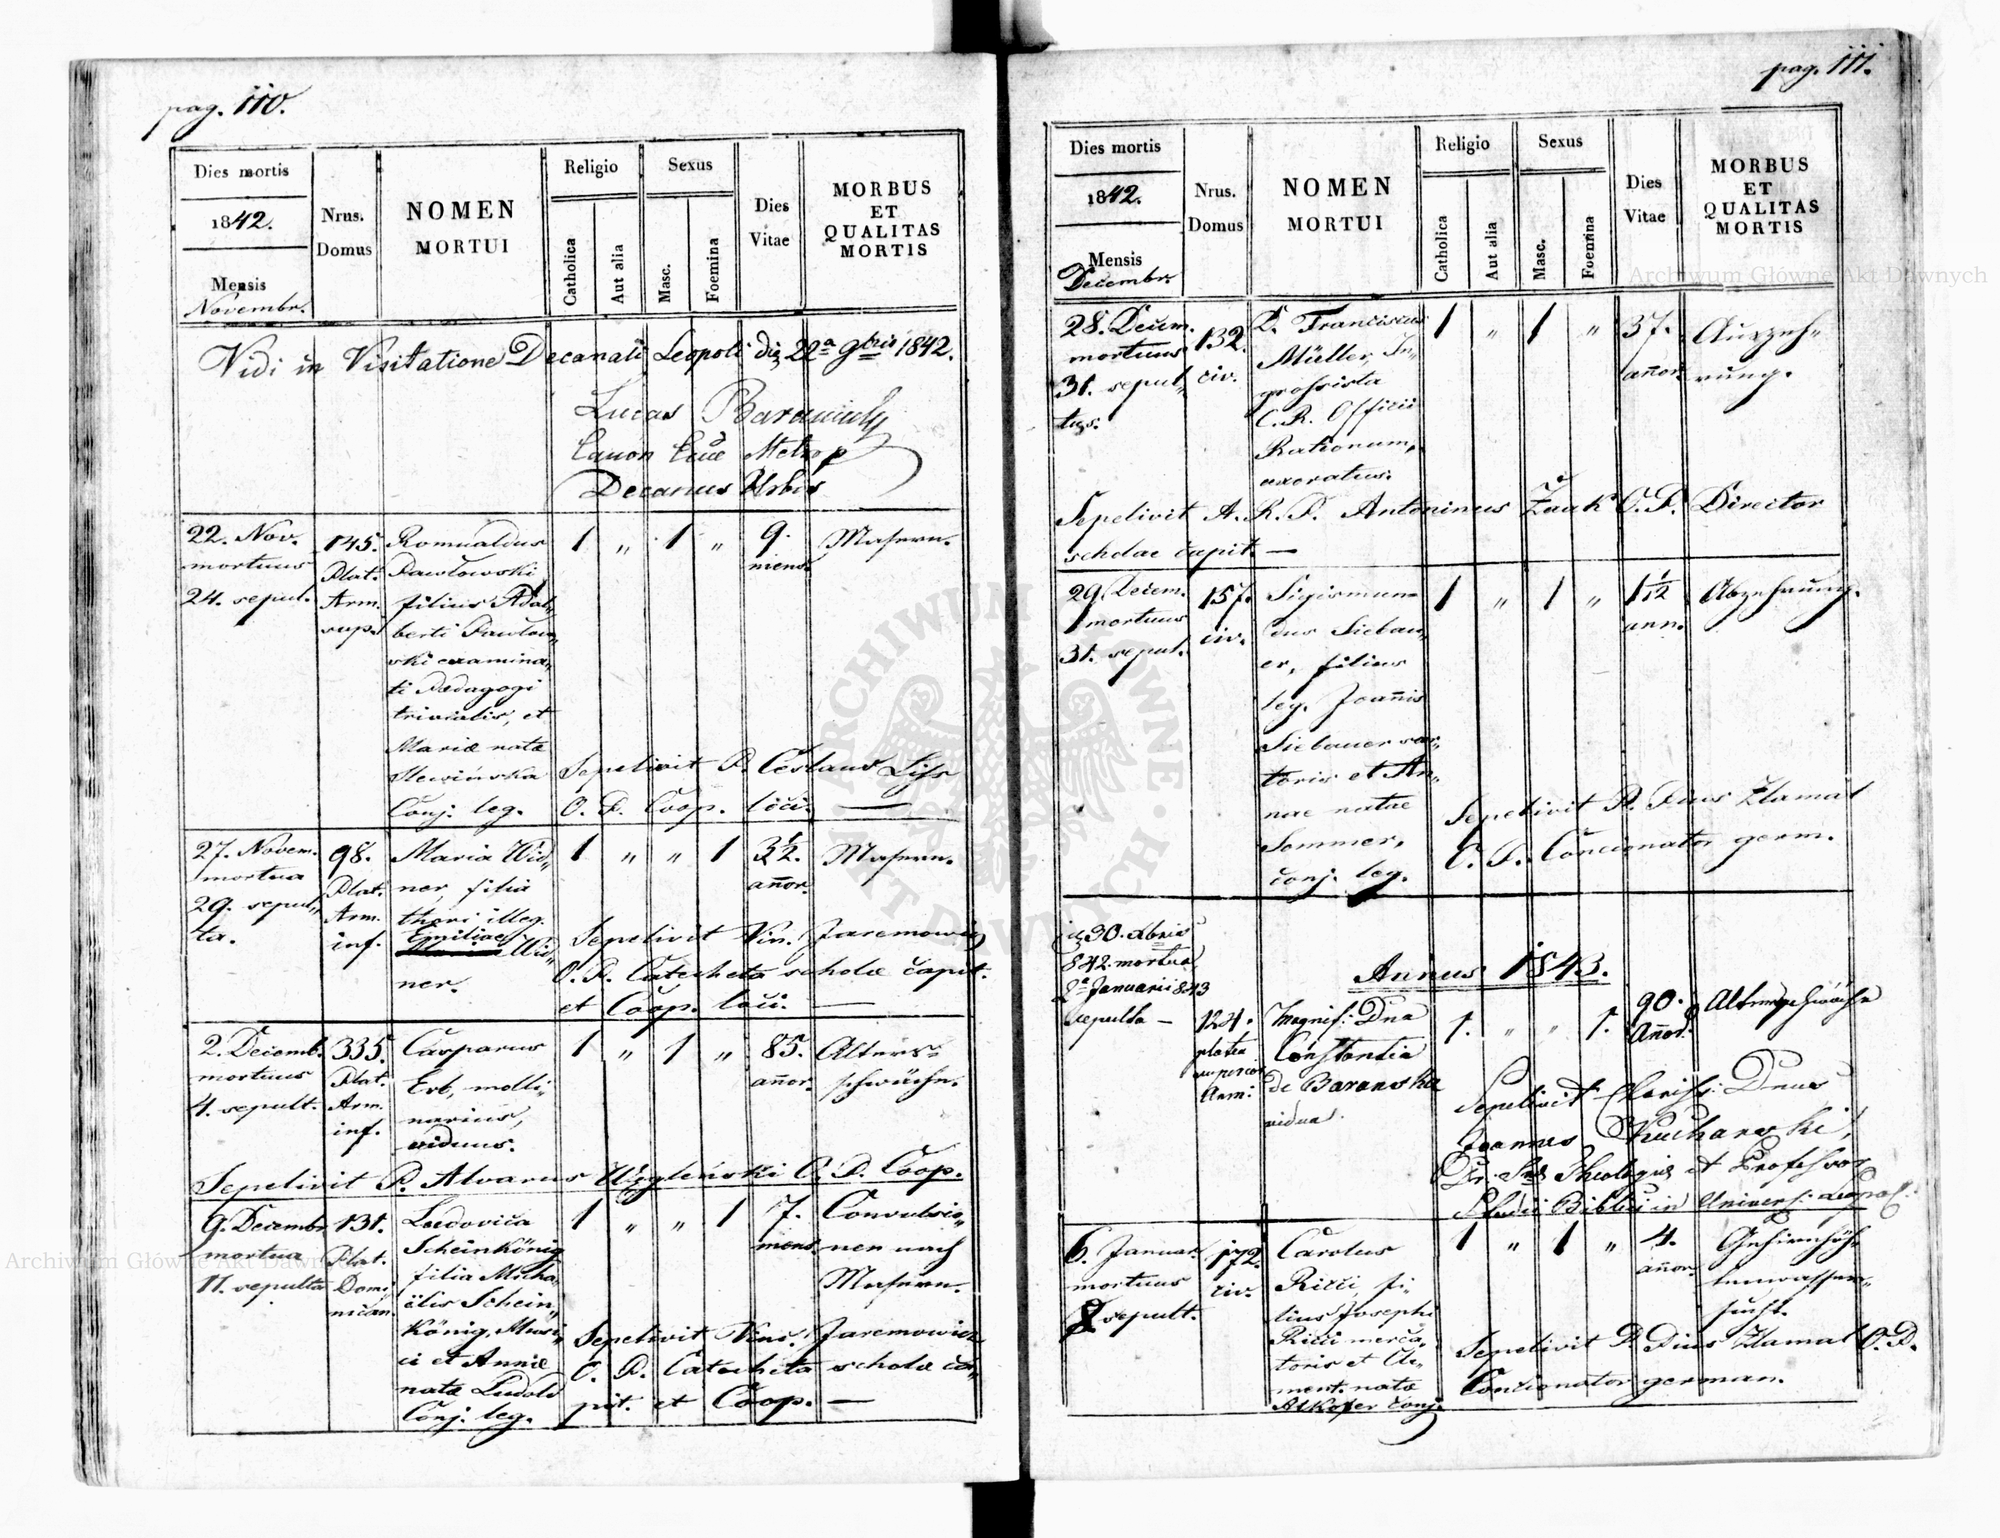 pag. 110.
Dies mortis
1842.
Mensis
Novembr.
Nrus.
Domus
NOMEN
MORTUI
Religio
Catholica
Aut alia
Sexus
Masc.
Foemina
Dies
Vitae
MORBUS
ET
QUALITAS
MORTIS
Vidi in Visitatione Decanali Leopoli die 22a 9bris 1842.
Lucas
Canon Metrop
Decanus Urbis
22. Nov.
mortuus
24. sepul.
145.
Plat.
Arm.
sup.
Romualdus
Pawłowski
filius Adal„
berti Pawłow„
ski examina„
ti Pædagogi
trivialis, et
Mariæ natæ
Conj. leg.
1 „ 1 „
9.
mens.
Masern.
Sepelivit P. Ceslaus Liss
O. P. Coop. loci. —
27. Novem.
mortua
29. sepul„
ta.
98.
Plat.
Arm.
inf.
Maria Wid„
ner, filia
thori illeg.
Emiliae Wid„
ner.
1 „ „ 1
3½.
añor.
Masern.
Sepelivit Vin. Jaremowicz
O. P. Catecheta scholæ capit.
et Coop. loci. —
2. Decemb.
mortuus
4. sepult.
335.
Plat.
Arm.
inf.
Casparus
Erb, molli„
narius,
viduus.
1 „ 1 „
85.
añor.
Alters„
schwäche.
Sepelivit P. Alvarus O. P. Coop.
9. Decembr.
mortua
11. sepulta
131.
Plat.
Domi„
nican.
Ludovica
Scheinkönig
filia Micha„
ëlis Schein„
könig, Musi„
ci et Annæ
natæ Ludold
Conj. leg.
1 „ „ 1
7.
mens.
Convulsio„
nen nach
Masern.
Sepelivit Vinc. Jaremowicz
O. P. Catecheta scholæ ca„
pit. et Coop. —
pag. 111.
Dies mortis
1842.
Mensis
Decembr.
Nrus.
Domus
NOMEN
MORTUI
Religio
Catholica
Aut alia
Sexus
Masc.
Foemina
Dies
Vitae
MORBUS
ET
QUALITAS
MORTIS
28. Decem.
mortuus
31. sepul„
tus.
132.
civ.
D. Franciscus
Müller, In„
grossista
C. R. Officii
Rationum,
uxoratus.
1 „ 1 „
37.
añor.
Auszeh„
rung.
Sepelivit A. R. P. Antoninus Žaak O. P. Director
scholae capit. —
29. Decem.
mortuus
31. sepul.
157.
civ.
Sigismun„
dus Siebau„
er, filius
leg. Joañis
Siebauer sar„
toris et An„
nae natae
Sommer,
conj. leg.
1 „ 1 „
1 1/12
ann.
Abzehrung.
Sepelivit P. Pius Zlamal
O. P. Concionator germ.
Annus 1843.
30. Xbris
842. mortua
2a Januarii 843
sepulta —
124.
platea
superior
Arm:
Magnif: Dna
Constantia
de Baranska
vidua.
1. „ „ 1.
90.
Añor.
Altersschwäche
Sepelivit Clariss: Dnus
Joannes Kucharski,
Dr. Theologiæ et Professor
Studii Biblici in Universi: Leopol.
6. Januar.
mortuus
8 sepult.
172.
civ.
Carolus
Ricci, fi„
lius Josephi
Ricci merca„
toris et Cle„
ment. natæ
conj.
1 „ 1 „
4.
añor.
Gehirnhöh„
lenwasser„
sucht.
Sepelivit P. Pius Zlamal O. P.
Concionator german.
Archiwum Główne Akt Dawnych
Archiwum Główne Akt Dawnych
ARCHIWUM GŁÓWNE AKT DAWNYCH